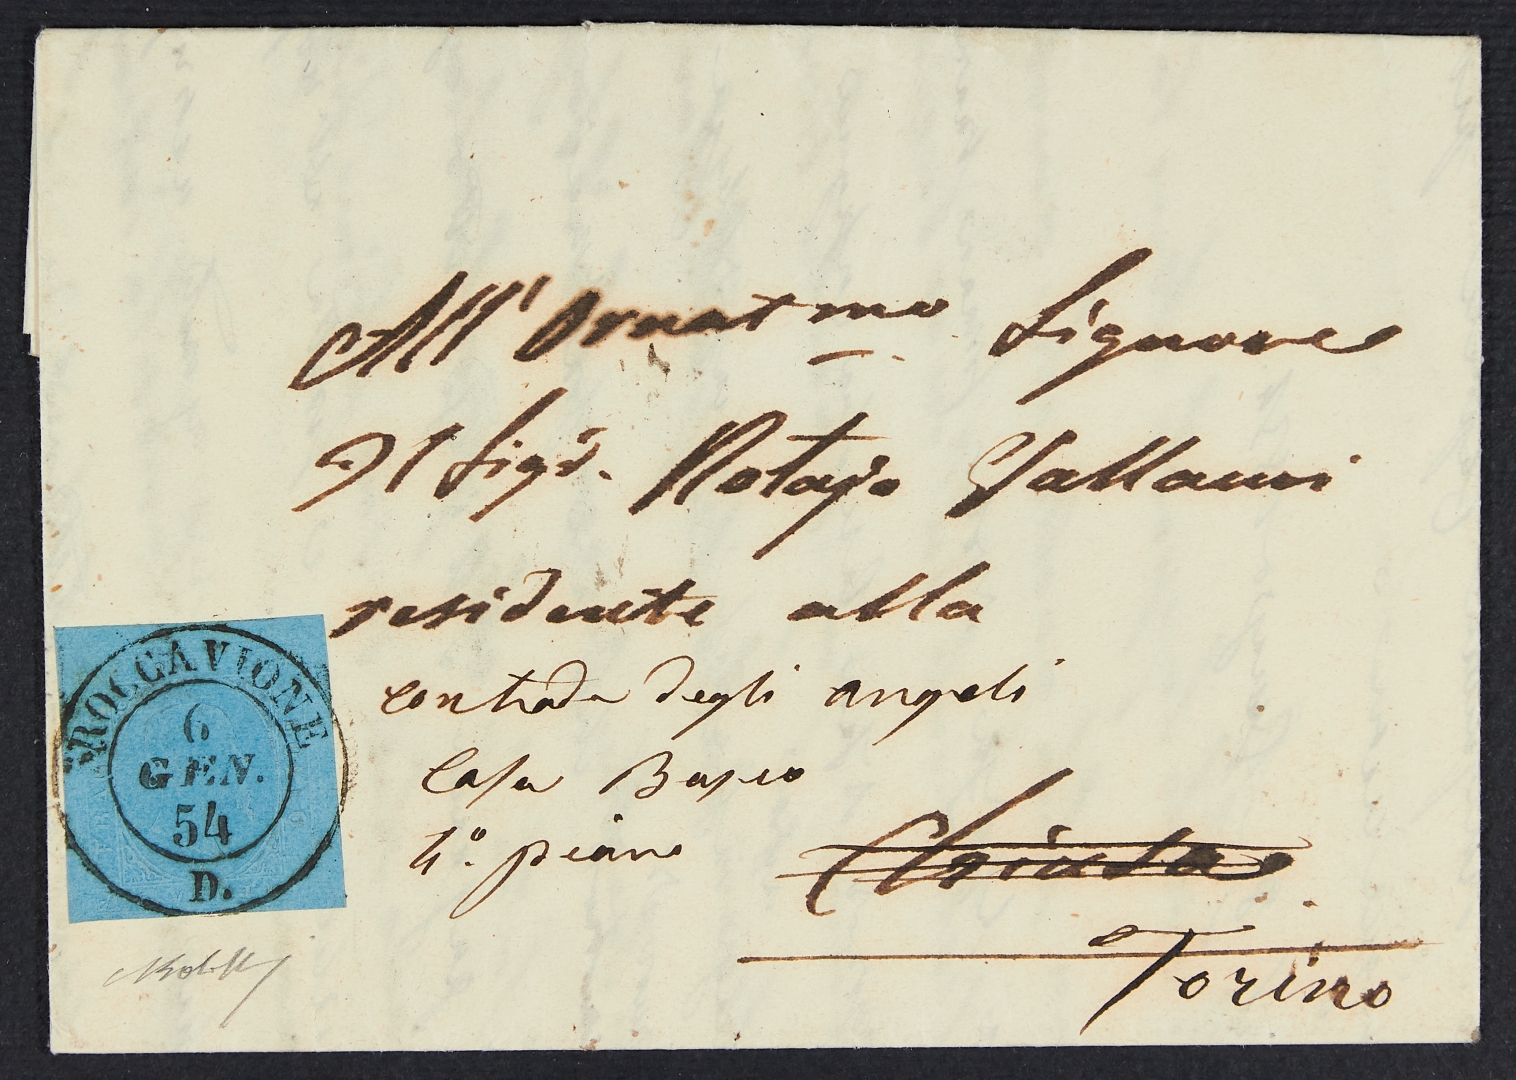 All' Ornatmo Signore
Il Sigr. Notajo Vallauri
residente alla
contrada degli angeli
Casa Basco
4º. piano
Chiusa
Torino
ROCCAVIONE
6
GEN.
54
D.